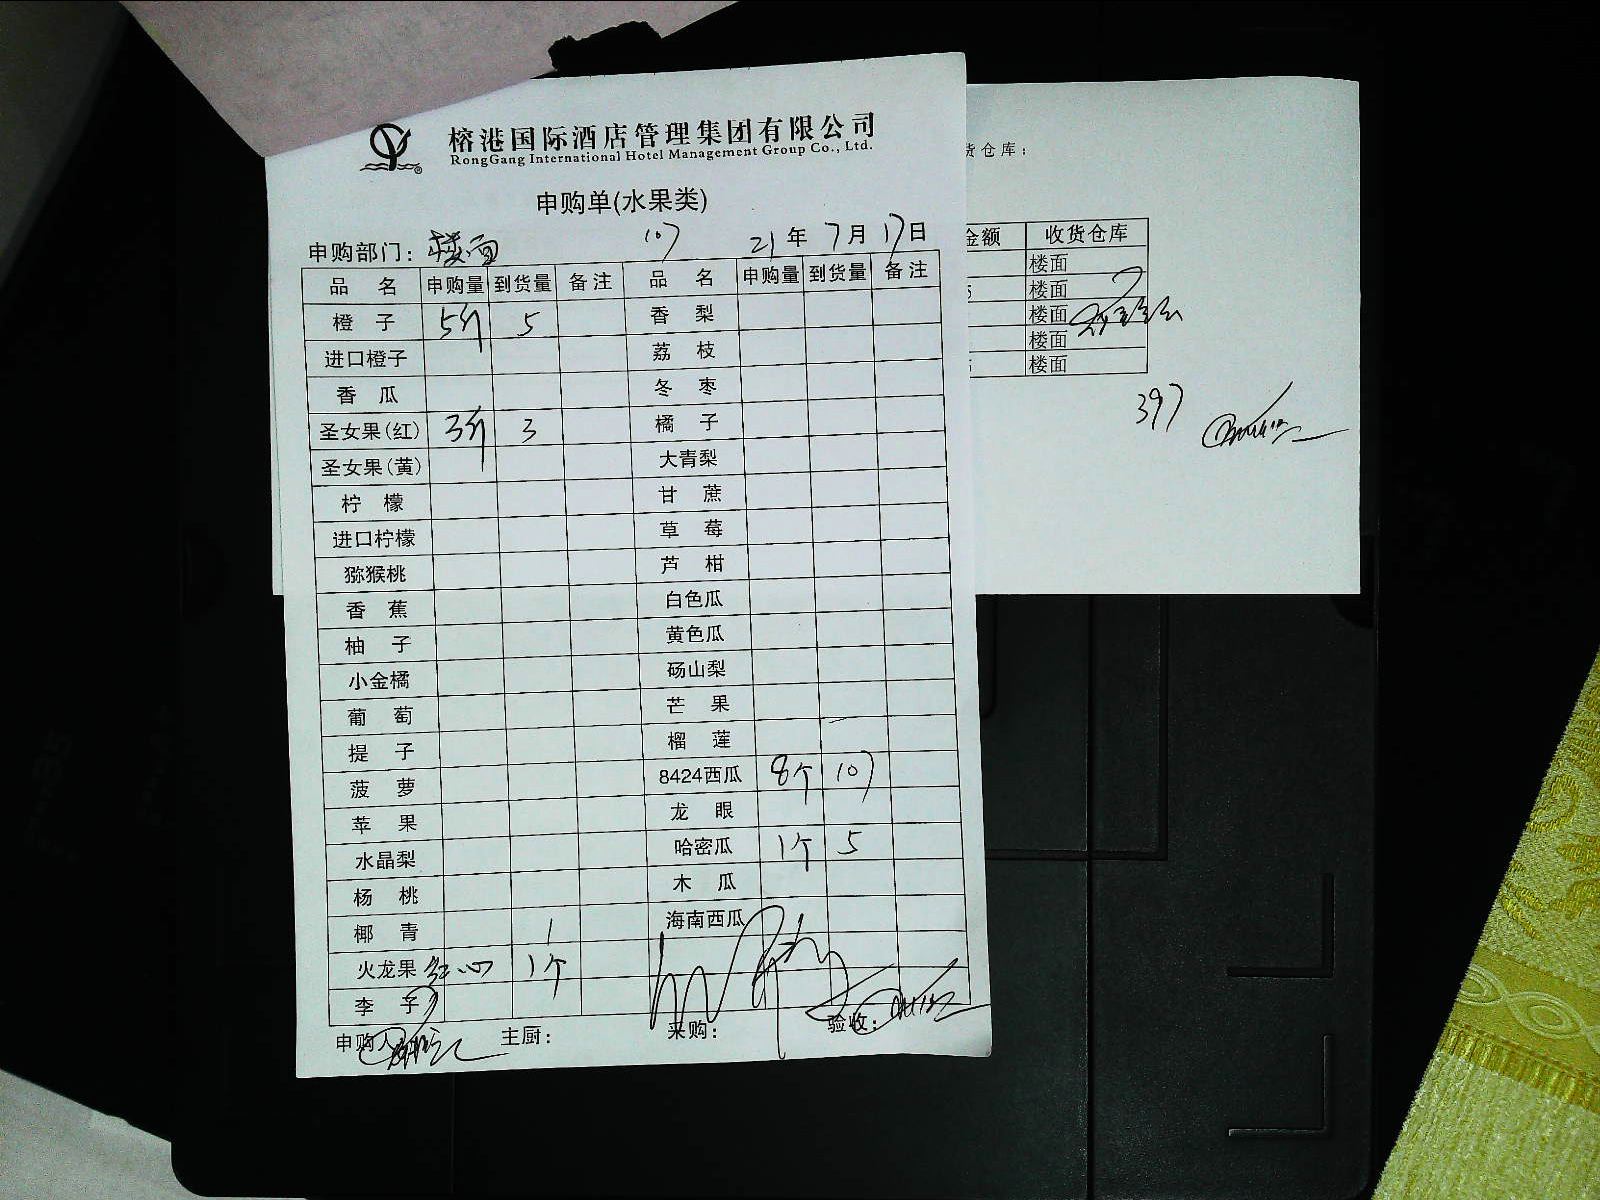 榕港国际酒店管理集团有限公司
RongGang International Hotel Management Group Co., Ltd.
申购单(水果类)
申购部门：楼面 107 21年7月17日
品 名 申购量 到货量 备注 品 名 申购量 到货量 备注
橙 子 5斤 5 香 梨
进口橙子 荔 枝
香 瓜 冬 枣
圣女果(红) 3斤 3 橘 子
圣女果(黄) 大青梨
柠 檬 甘 蔗
进口柠檬 草 莓
猕猴桃 芦 柑
香 蕉 白色瓜
柚 子 黄色瓜
小金橘 砀山梨
葡 萄 芒 果
提 子 榴 莲
菠 萝 8424西瓜 8个 107
苹 果 龙 眼
水晶梨 哈密瓜 1个 5
杨 桃 木 瓜
椰 青 1 海南西瓜
火龙果 红心 1个
李 子
申购人 主厨： 采购： 验收：
货仓库：
金额 收货仓库
楼面
5 楼面
楼面
楼面
楼面
397